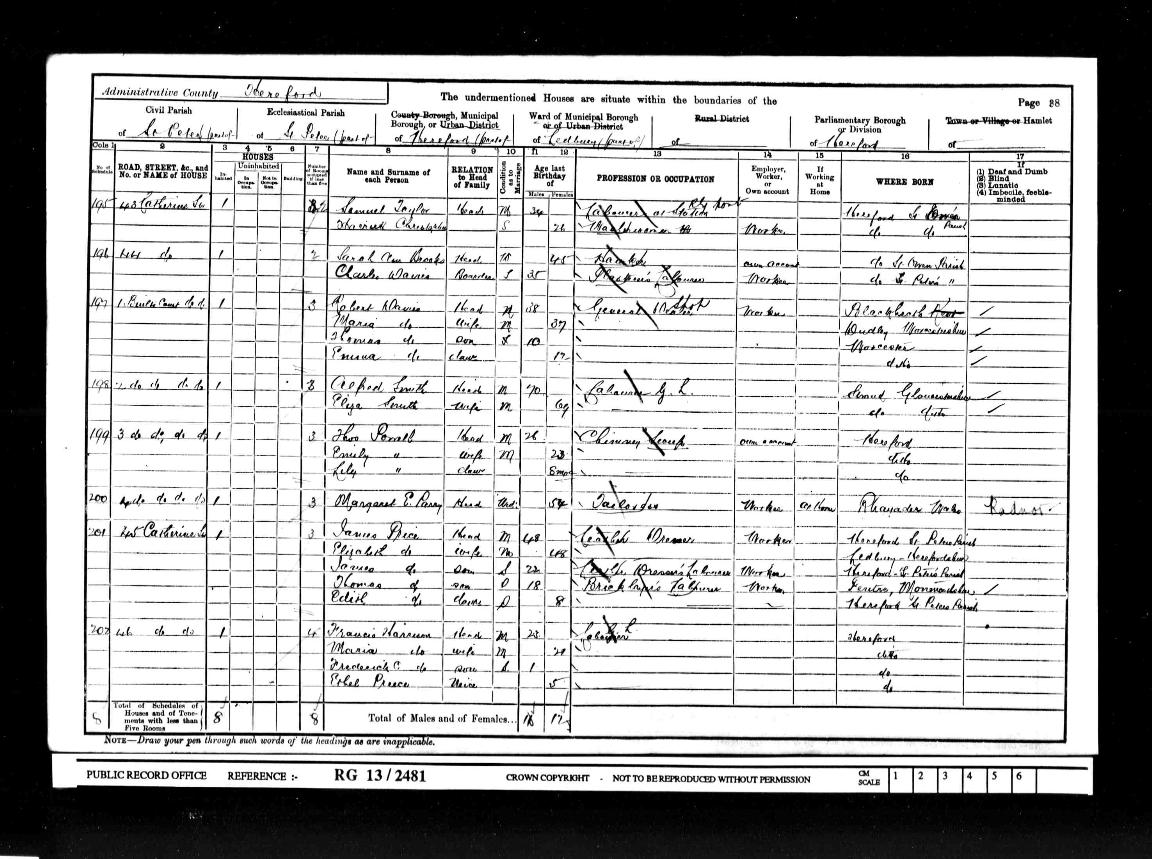 Administrative County Hereford
The undermentioned Houses are situate within the boundaries of the
Page 38
Civil Parish
Ecclesiastical Parish
County Borough, Municipal Borough, or Urban District
Ward of Municipal Borough or of Urban District
Rural District
Parliamentary Borough or Division
Town or Village or Hamlet
of St Peter (part of
of St Peter (part of
of Hereford (part of
of Ledbury (part of
of
of Hereford
of
Cols 1 2 3 4 5 6 7 8 9 10 11 12 13 14 15 16 17
No. of Schedule
ROAD, STREET, &c., and No. or NAME of HOUSE
HOUSES
Inhabited
Uninhabited
In Occupation
Not in Occupation
Building
Number of Rooms occupied if less than five
Name and Surname of each Person
RELATION to Head of Family
Condition as to Marriage
Age last Birthday of
Males Females
PROFESSION OR OCCUPATION
Employer, Worker, or Own account
If Working at Home
WHERE BORN
(1) Deaf and Dumb
(2) Blind
(3) Lunatic
(4) Imbecile, feeble-minded
195 43 Catherine St 1 Samuel Taylor Head M 34 Labourer at Station Hereford St Owen's Parish
S 26 Worker do do
196 44 do 1 2 Sarah Ann Brooks Head 45 Hawker own account do St Owen Parish
Charles Davies Boarder S 35 Labourer Worker do St Peter's "
197 1 Court do do 1 3 Robert Davies Head M 38 General Worker Blackheath
Maria do Wife M 37 Dudley Worcestershire
Thomas do Son S 10 Worcester
Emma do daur 12 ditto
198 2 do do do do 1 3 Alfred Smith Head M 70 Labourer G. L. Stroud Gloucestershire
Eliza Smith Wife M 69 do ditto
199 3 do do, do do 1 3 Thos Powell Head M 26 Chimney Sweep own account Hereford
Emily " Wife M 23 ditto
Lily " daur 8 mos do
200 4 do do do do 1 3 Margaret E. Parry Head Wid. 54 Tailoress Worker at Home Rhayader Wales Radnor
201 45 Catherine St 1 3 James Price Head M 48 Leather Dresser Worker Hereford St Peters Parish
Elizabeth do Wife M 48 Ledbury - Herefordshire
James do Son S 22 Leather Dresser's Labourer Worker Hereford - St Peter's Parish
Thomas do son S 18 Bricklayer's Labourer Worker Monmouthshire
Edith do daur S 8 Hereford St Peters Parish
202 46 do do 1 4 Francis Harrison Head M 23 Labourer Hereford
Maria do wife M 21 ditto
Frederick C. do son S 1 do
Ethel Preece Neice 5 do
8 Total of Schedules of Houses and of Tenements with less than Five Rooms 8 8 Total of Males and of Females... 12
NOTE—Draw your pen through such words of the headings as are inapplicable.
PUBLIC RECORD OFFICE REFERENCE :- RG 13/2481 CROWN COPYRIGHT - NOT TO BE REPRODUCED WITHOUT PERMISSION CM SCALE 1 2 3 4 5 6